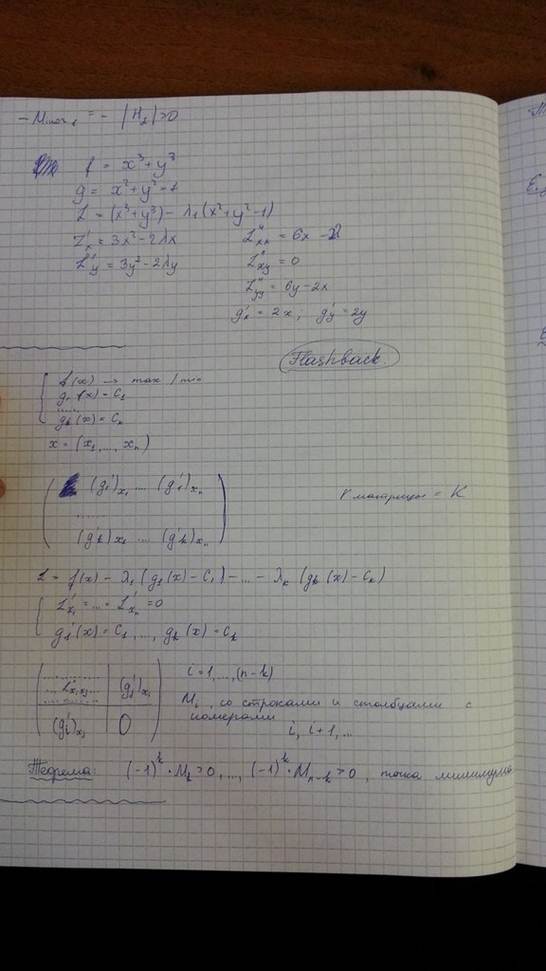 |H₂|>0
f = x³+y³
g = x²+y²=1
L = (x³+y³) - λ₁(x²+y²-1)
L'ₓ = 3x²-2λx L''ₓₓ = 6x -2λ
L'y = 3y²-2λy L''ₓy = 0
L''yy = 6y-2λ
g'ₓ = 2x; g'y = 2y
Flashback
f(x) → max/min
g₁(x) = C₁
......
gk(x) = Ck
x = (x₁, ..., xₙ)
(g₁')x₁ ... (g₁')xₙ r матрицы = K
......
(g'k)x₁ ... (g'k)xₙ
L = f(x) - λ₁(g₁(x)-C₁) - ... - λk(gk(x)-Ck)
L'x₁ = ... = L'xₙ = 0
g₁'(x) = C₁, ..., gk(x) = Ck
i = 1, ..., (n-k)
... L''xᵢxⱼ ... (g'ⱼ)xᵢ Mᵢ, со строками и столбцами с
номерами
(g'ᵢ)xⱼ 0 i, i+1, ...
Теорема: (-1)ᵏ · M₁>0, ..., (-1)ᵏ · Mₙ₋k>0, точка минимума